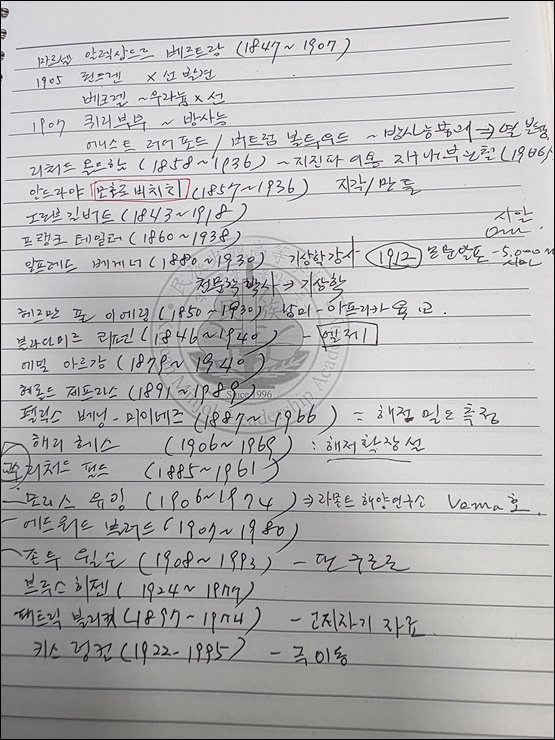 마르셀 알렉상드르 베르트랑 (1847~1907)
1905 뢴트겐 X선 발견
베크렐 ~ 우라늄 X선
1907 퀴리부부 ~ 방사능
어니스트 러더포드 / 버트럼 볼트우드 ~ 방사능붕괴 ⇒ 연
리처드 올드햄 (1858~1936) ~ 지진파 이용 지구내부 (1906)
안드리야 모호로비치치 (1857~1936) 지각/맨틀
그로브 길버트 (1843~1918)
프랭크 테일러 (1860~1938)
알프레드 베게너 (1880~1930) 기상학강사 1912 논문발표 -5,000
천문학박사 → 기상학
헤르만 폰 이에링 (1850~1930) 남미-아프리카 육교.
블라디미르 쾨펜 (1846~1940) -
에밀 아르강 (1879~1940)
해롤드 제프리스 (1891~1989)
펠릭스 베닝-마이네즈 (1887~1966) : 해정 밀도 측정
해리 헤스 (1906~1969) : 해저확장설
리처드 필드 (1885~1961)
-모리스 유잉 (1906~1974) ⇒ 라몬트 해양연구소 Vema호.
-에드워드 불러드 (1907~1980)
-존투 윌슨 (1908~1993) -
브루스 히젠 (1924~1977)
패트릭 블래킷 (1897~1974) - 고지자기 자료.
키스 렁컨 (1922-1995) - 극이동
Leadership Academy
Since 1996